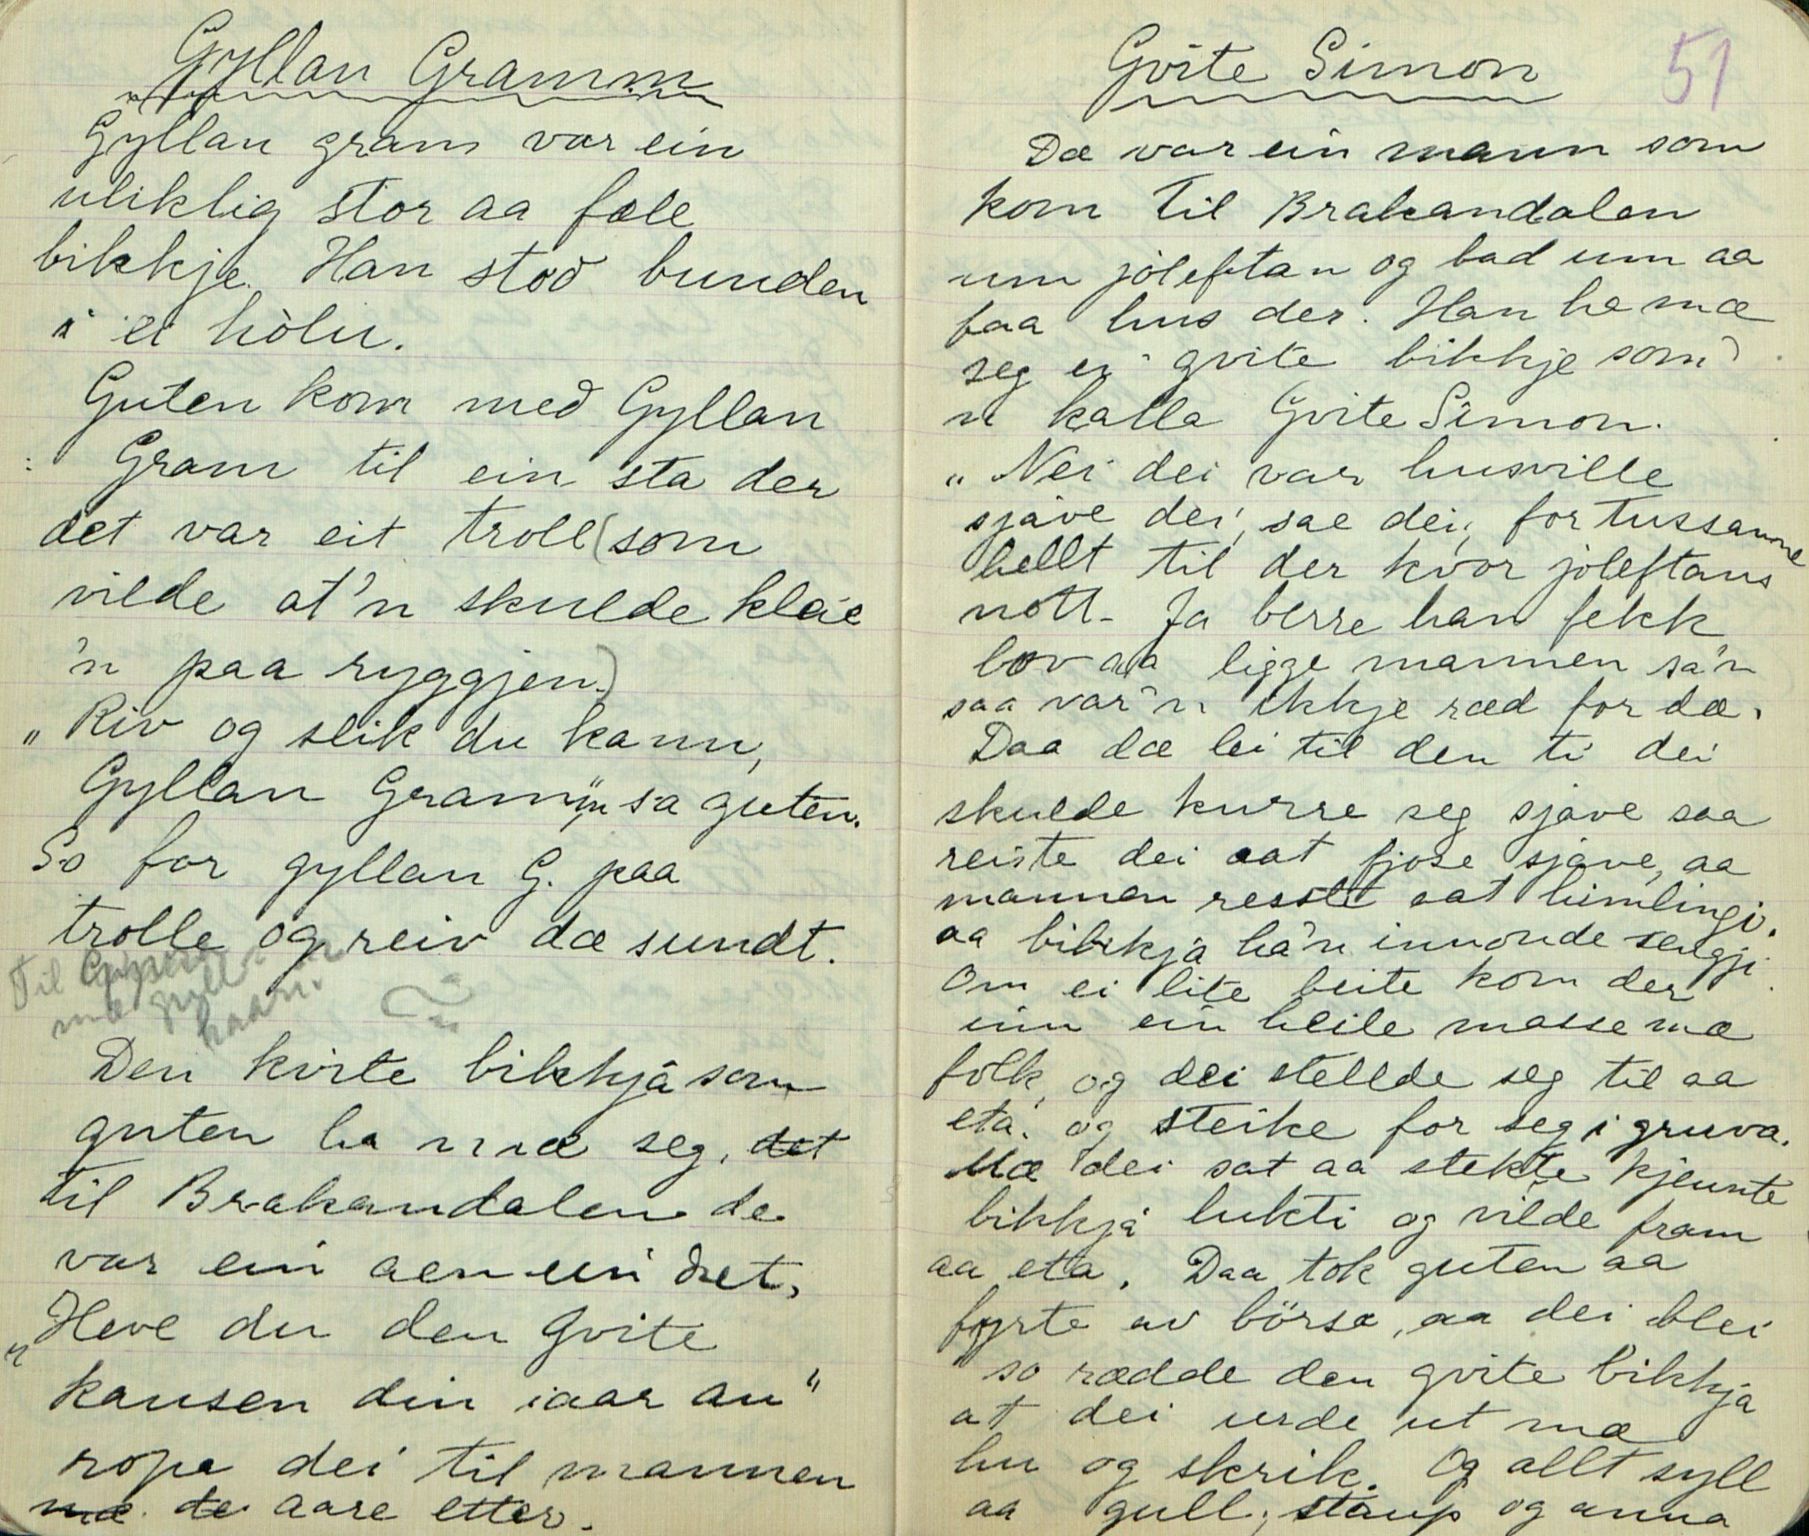 Gyllan Gramm
Gyllan gram var ein
uliklig stor aa fæle
bikkje. Han stod bunden
i ei hòlu.
Guten kom med Gyllan
Gram til ein sta der
det var eit troll (som
vilde at'n skulde klaie
'n paa ryggjen.)
„Riv og slik du kann,
Gyllan Gram" sa guten.
So for gyllan G. paa
trolle og reiv dæ sundt.
Til
mæ gyll
haari.
Den kvite bikkjå som
guten ha mæ seg, det
til Brakandalen de
var ein aen ein det,
„Heve du den Gvite
kausen din iaar au"
ropa dei til mannen
mæ de aare etter.
Gvite Simon
51
Dæ var ein mann som
kom til Brakandalen
um jòleftan og bad um aa
faa hus der. Han ha mæ
seg ei gvite bikkje som
n kalla Gvite Simon.
„Nei dei var husville
sjåve dei, sae dei, for tussanne
hellt til der kvor jòleftans
nott. Ja berre han fekk
lov aa ligge mannen sa'n
saa var'n ikkje ræd for dæ.
Daa dæ lei til den ti dei
skulde kurre seg sjåve saa
reiste dei aat fjose sjåve, aa
mannen resste aat himlingi,
aa bikkjå ha'n innonde sengji.
Om ei lite beite kom der
inn ein heile masse mæ
folk, og dei stellde seg til aa
eta, og steike for seg i gruva.
Mæ dei sat aa stekte kjennte
bikkjå lukti og vilde fram
aa eta. Daa tok guten aa
fyrte av börsa, aa dei blei
so rædde den gvite bikkja
at dei urde ut mæ
hu og skrik. Og allt syll
aa gull, staup og anna